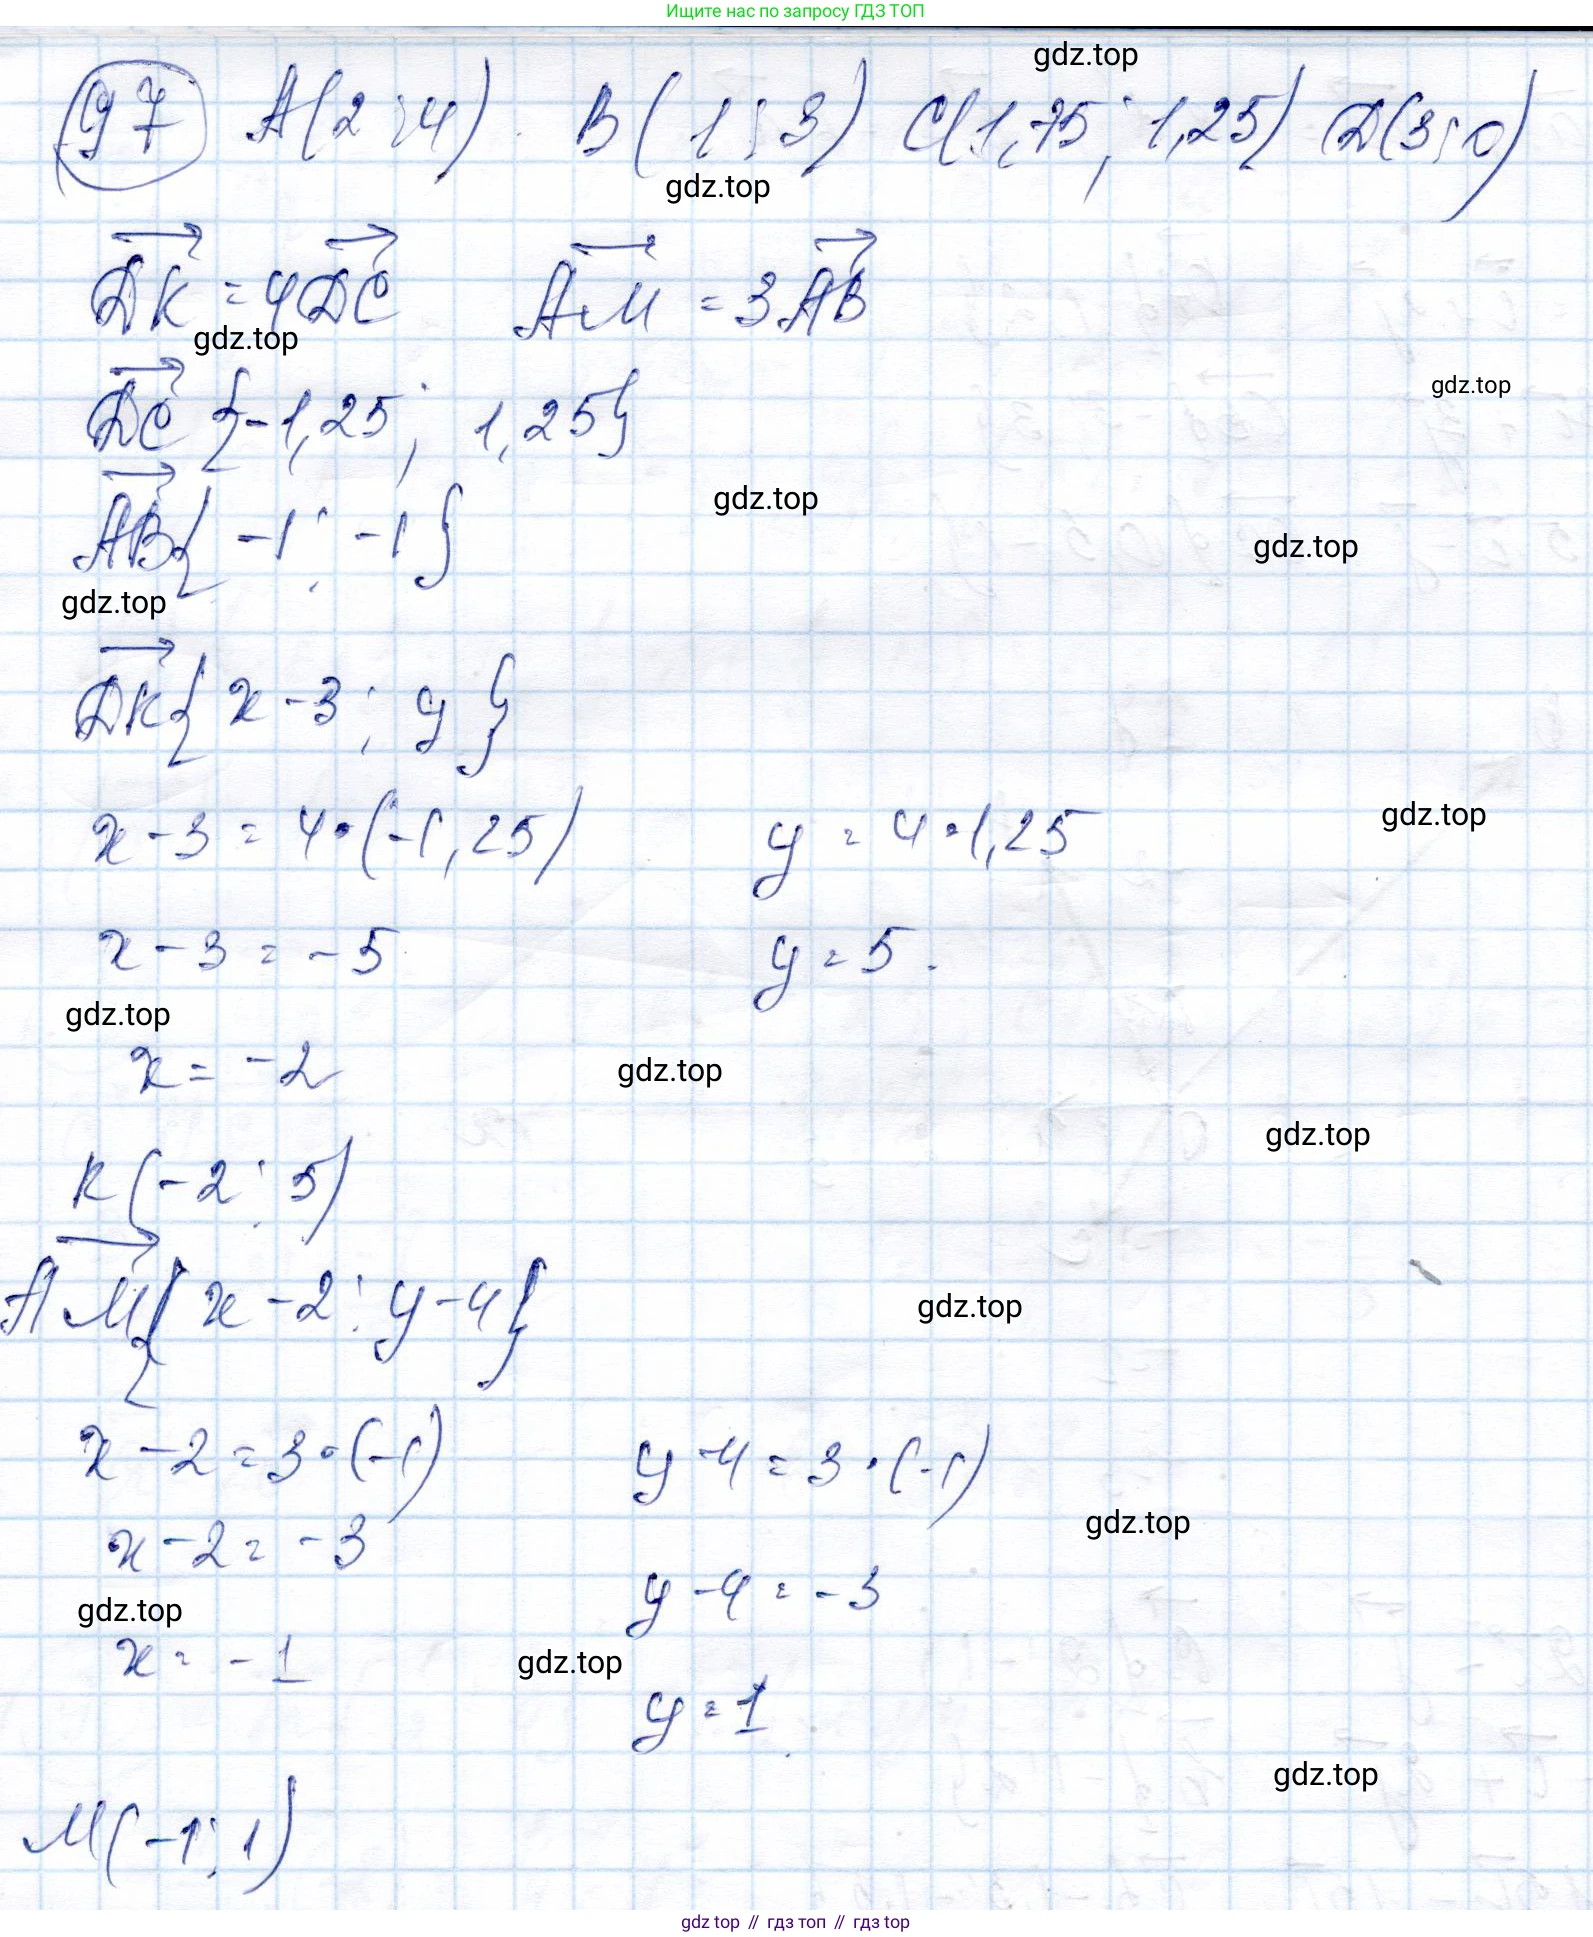 Ищите нас по запросу ГДЗ ТОП
gdz.top
97 A(2;4) B(1;3) C(1,75; 1,25) D(3;0)
gdz.top
DK = 4DC AM = 3AB
gdz.top
DC {-1,25; 1,25}
gdz.top
AB {-1; -1}
gdz.top
gdz.top
gdz.top
DK {x-3; y}
gdz.top
x-3 = 4·(-1,25) y = 4·1,25
x-3 = -5 y = 5.
gdz.top
x = -2
gdz.top
gdz.top
K(-2; 5)
AM {x-2; y-4}
gdz.top
x-2 = 3·(-1) y-4 = 3·(-1)
gdz.top
x-2 = -3
y-4 = -3
gdz.top
x = -1
gdz.top
y = 1
gdz.top
M(-1; 1)
gdz top // гдз топ // гдз top